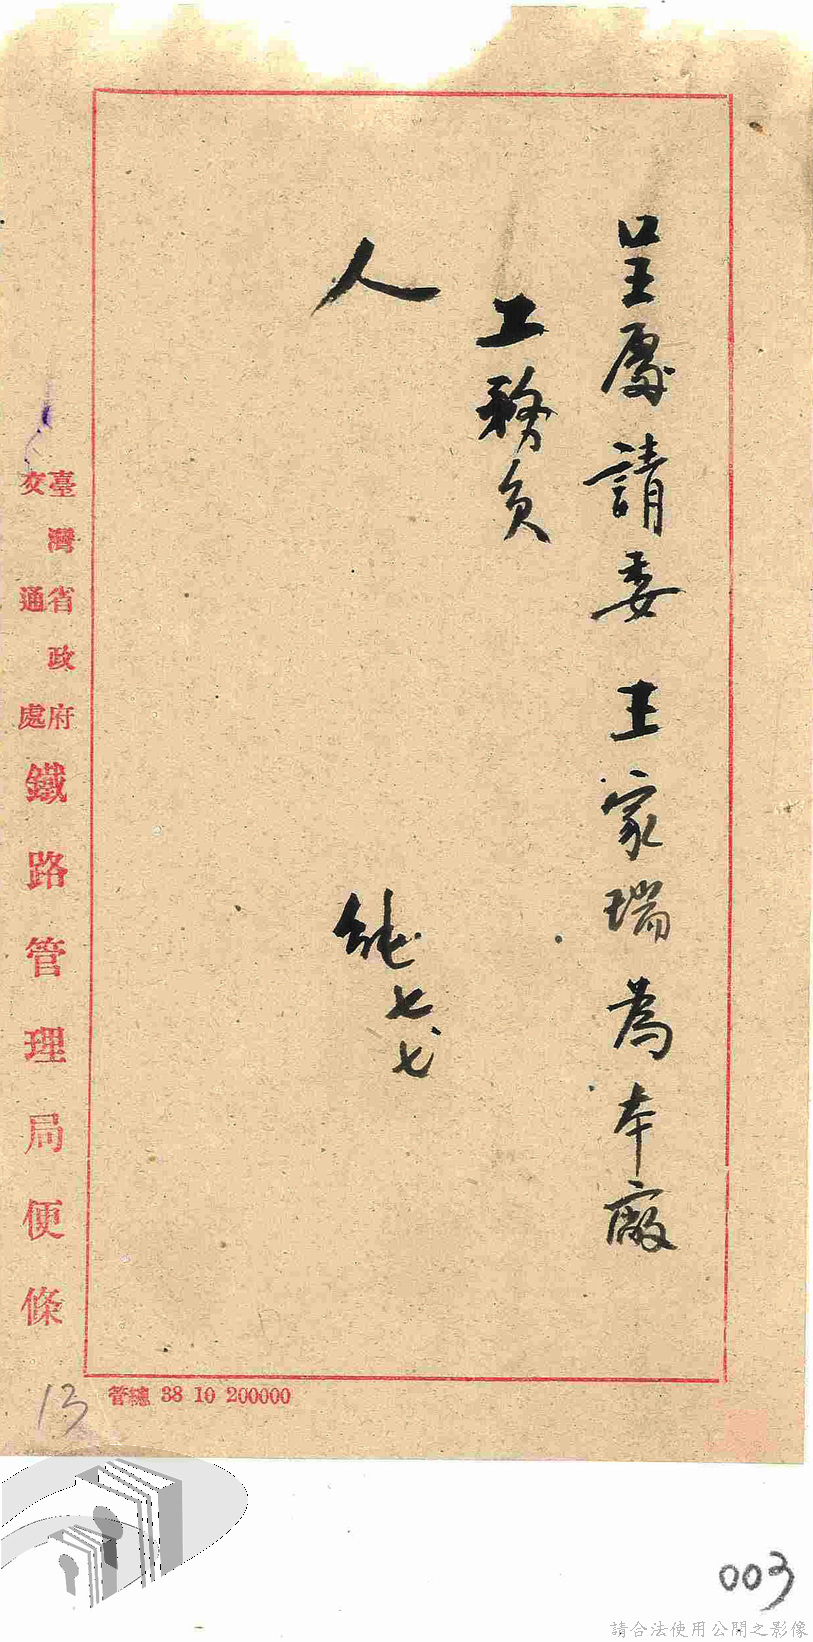 呈處請委王家瑞為本廠
工務員
人
純 七 七
臺灣省政府
交通處
鐵路管理局便條
管總 38 10 200000
13
003
請合法使用公開之影像